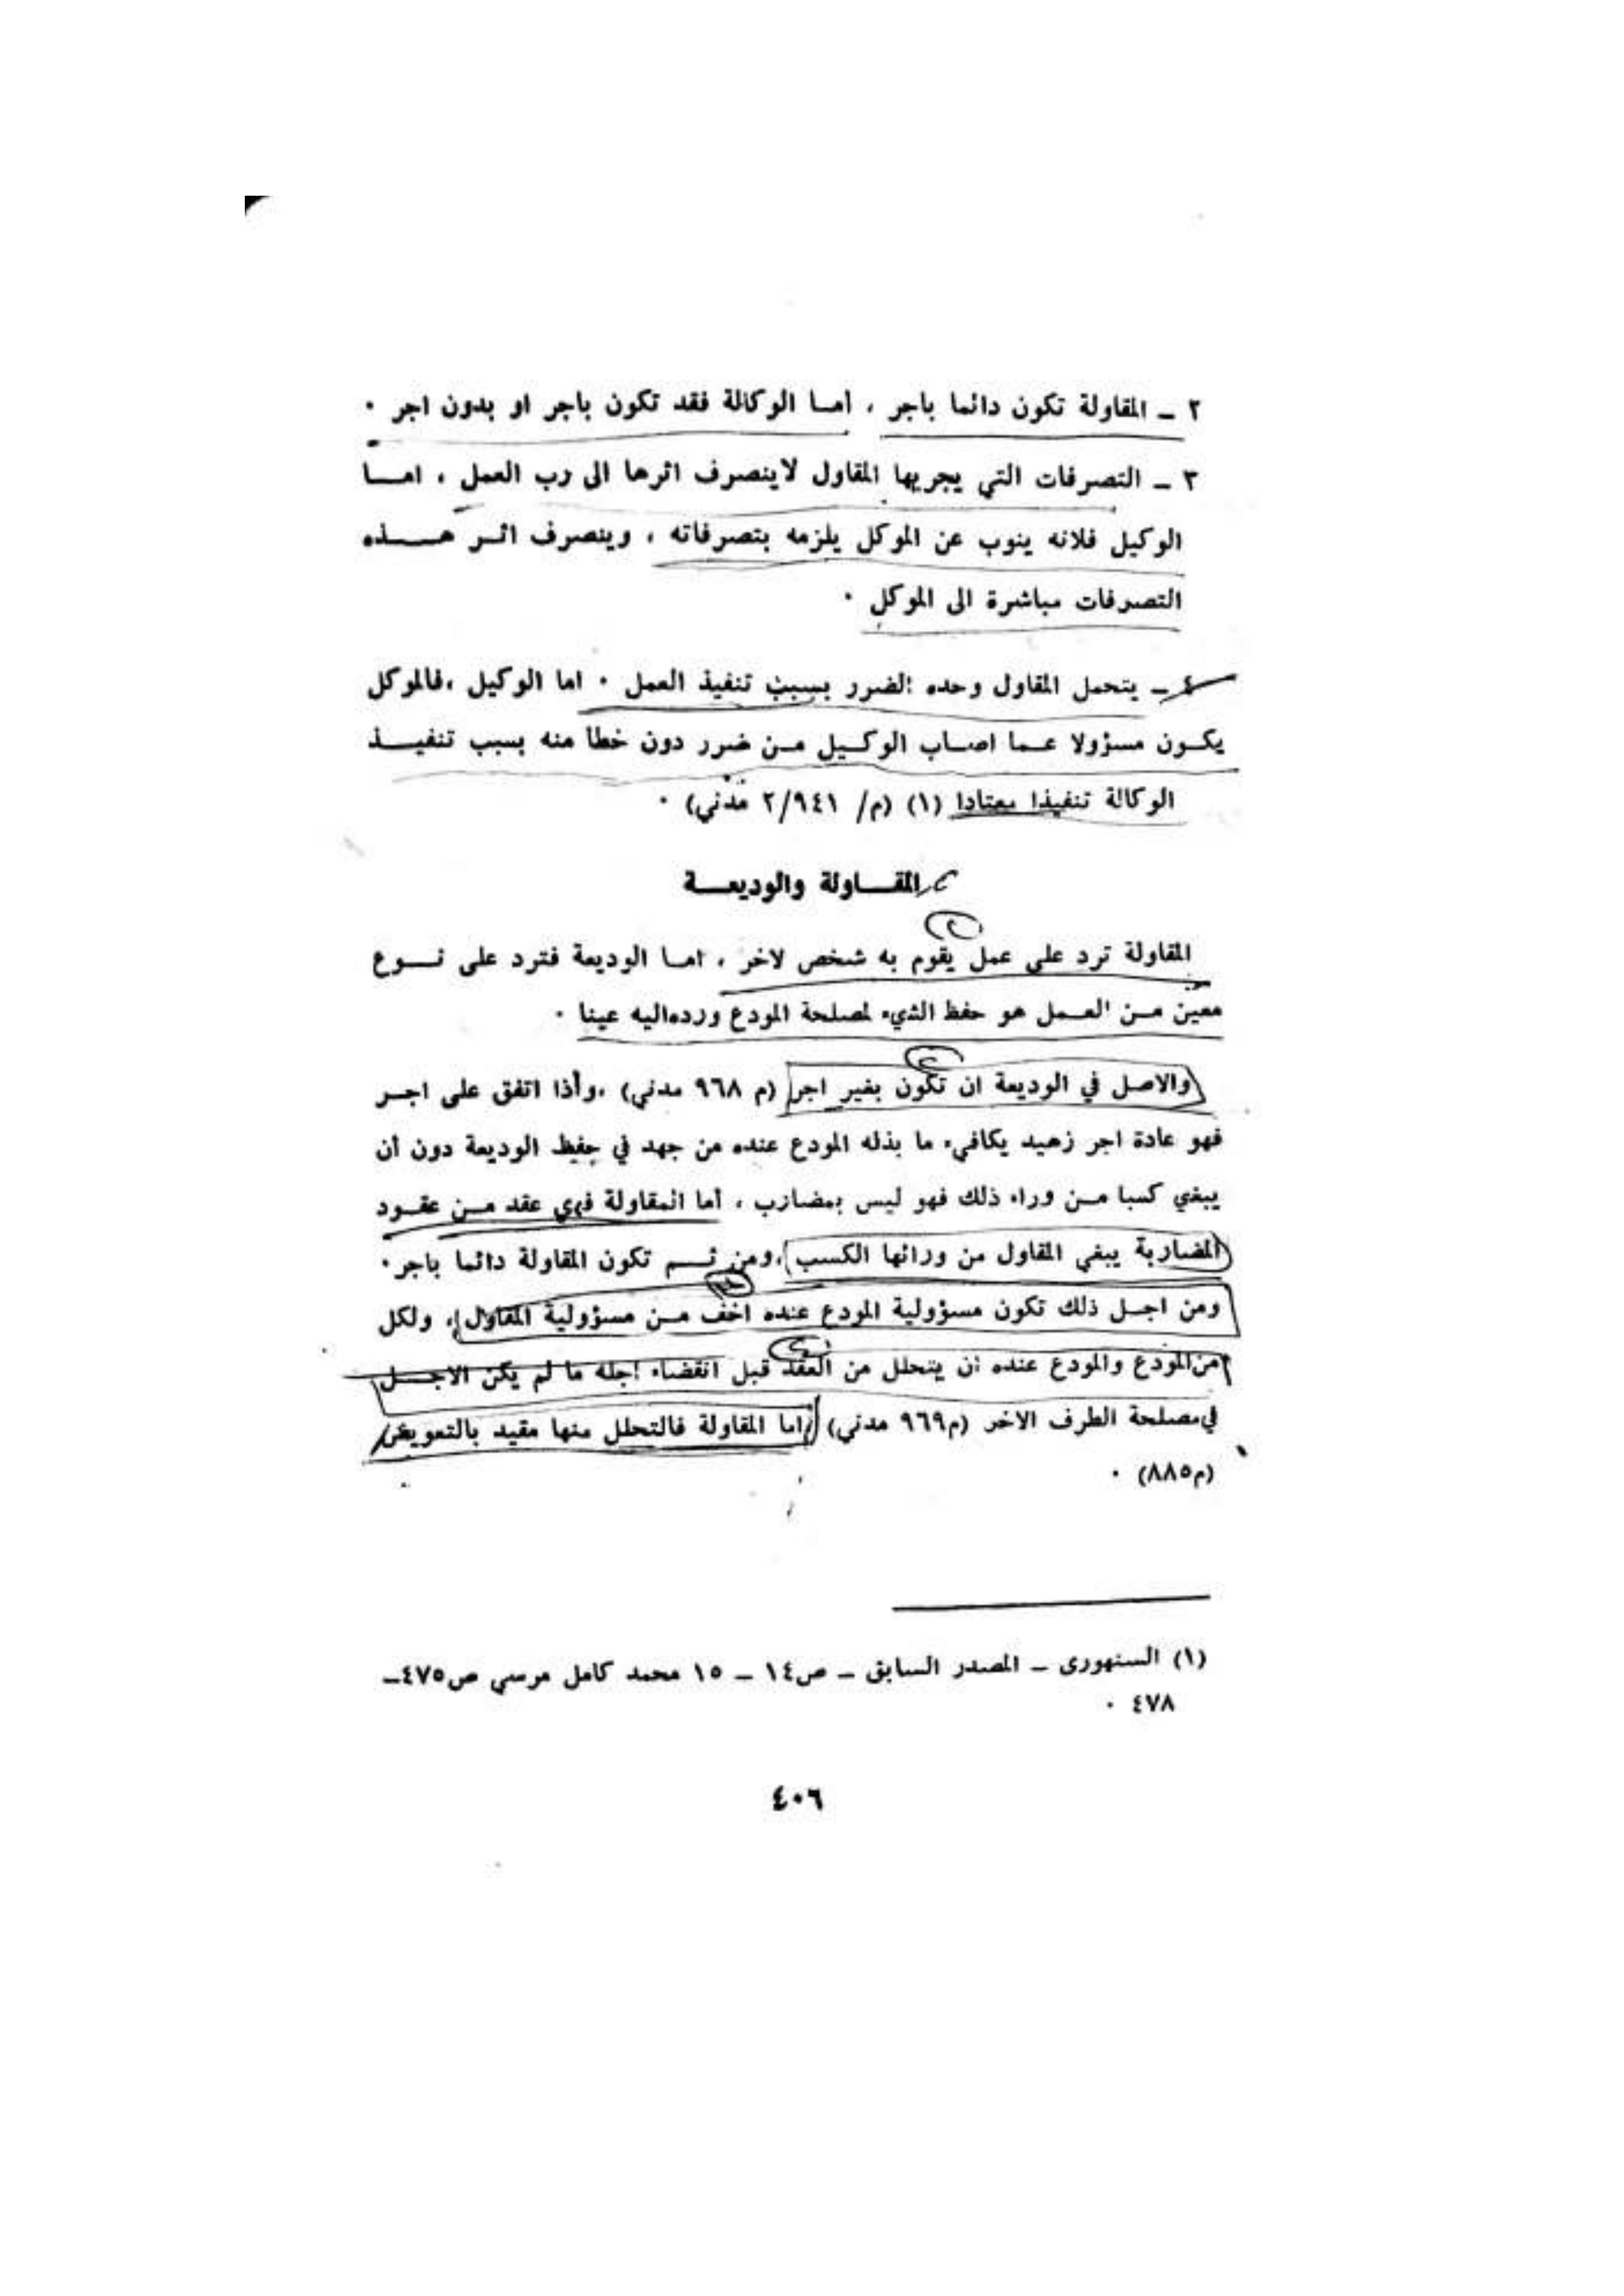 ٢ ــ المقاولة تكون دائما باجر ، امـا الوكالة فقد تكون باجر او بدون اجر ٠
٣ ــ التصرفات التي يجريها المقاول لاينصرف اثرها الى رب العمل ، امــا
الوكيل فلانه ينوب عن الموكل يلزمه بتصرفاته ، وينصرف اثــر هـــذه
التصرفات مباشرة الى الموكل ٠
٤ ــ يتحمل المقاول وحده الضرر بسبب تنفيذ العمل ٠ اما الوكيل ،فالموكل
يكـون مسؤولا عـما اصـاب الوكـيل مـن ضرر دون خطأ منه بسبب تنفيــذ
الوكالة تنفيذا معتادا (١) (م/ ٢/٩٤١ مدني) ٠
المقـــاولة والوديعـــة
المقاولة ترد على عمل يقوم به شخص لاخر ، امـا الوديعة فترد على نــوع
معين مـن العـمل هو حفظ الشيء لمصلحة المودع ورده‌اليه عينا ٠
والاصل في الوديعة ان تكون بغير اجر (م ٩٦٨ مدني) ،وأذا اتفق على اجـر
فهو عادة اجر زهيد يكافيء ما بذله المودع عنده من جهد في حفظ الوديعة دون أن
يبغي كسبا مـن وراء ذلك فهو ليس بمضارب ، أما المقاولة فهي عقد مـن عقـود
المضاربة يبغي المقاول من ورائها الكسب ،ومن ثــم تكون المقاولة دائما باجر٠
ومن اجـل ذلك تكون مسؤولية المودع عنده اخف مـن مسؤولية المقاول ، ولكل
من‌المودع والمودع عنده ان يتحلل من العقد قبل انقضاء اجله ما لم يكن الاجــل
في‌مصلحة الطرف الاخر (م٩٦٩ مدني) اما المقاولة فالتحلل منها مقيد بالتعويض
(م٨٨٥) ٠
(١) السنهورى ــ المصدر السابق ــ ص١٤ ــ ١٥ محمد كامل مرسي ص٤٧٥ــ
٤٧٨ ٠
٤٠٦